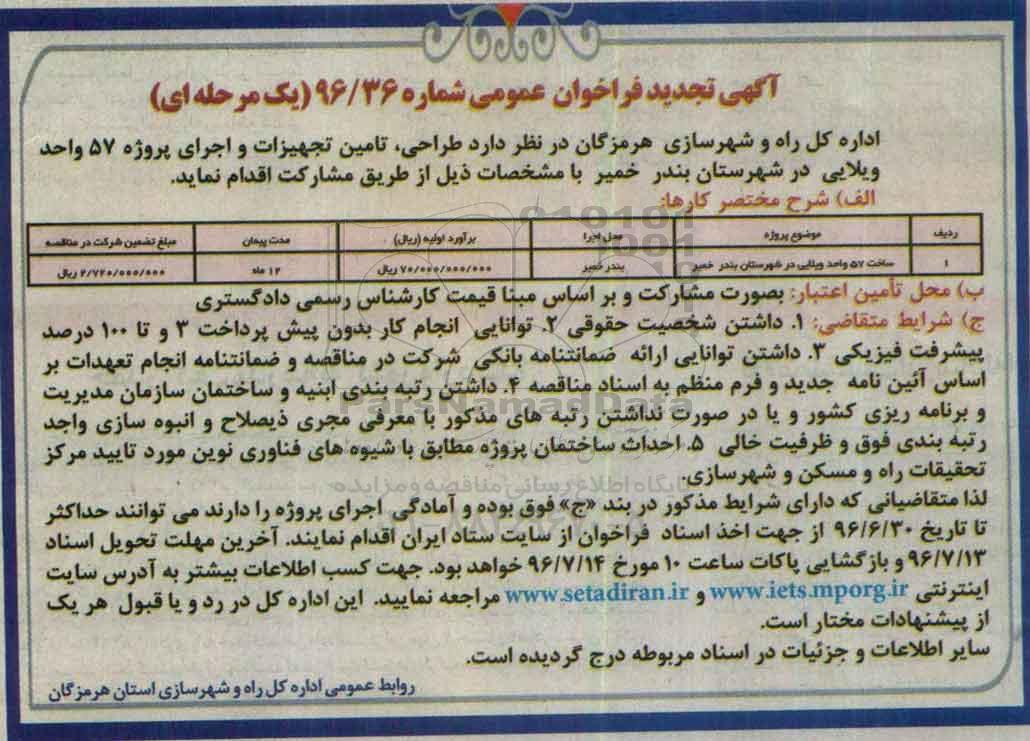 آگهی تجدید فراخوان عمومی شماره ۹۶/۳۶ (یک مرحله ای)
اداره کل راه و شهرسازی هرمزگان در نظر دارد طراحی، تامین تجهیزات و اجرای پروژه ۵۷ واحد
ویلایی در شهرستان بندر خمیر با مشخصات ذیل از طریق مشارکت اقدام نماید.
الف) شرح مختصر کارها:
ردیف موضوع پروژه محل اجرا برآورد اولیه (ریال) مدت پیمان مبلغ تضمین شرکت در مناقصه
۱ ساخت ۵۷ واحد ویلایی در شهرستان بندر خمیر بندر خمیر ۷۰/۰۰۰/۰۰۰/۰۰۰ ریال ۱۲ ماه ۲/۷۲۰/۰۰۰/۰۰۰ ریال
ب) محل تأمین اعتبار: بصورت مشارکت و بر اساس مبنا قیمت کارشناس رسمی دادگستری
ج) شرایط متقاضی: ۱. داشتن شخصیت حقوقی ۲. توانایی انجام کار بدون پیش پرداخت ۳ و تا ۱۰۰ درصد
پیشرفت فیزیکی ۳. داشتن توانایی ارائه ضمانتنامه بانکی شرکت در مناقصه و ضمانتنامه انجام تعهدات بر
اساس آئین نامه جدید و فرم منظم به اسناد مناقصه ۴. داشتن رتبه بندی ابنیه و ساختمان سازمان مدیریت
و برنامه ریزی کشور و یا در صورت نداشتن رتبه های مذکور با معرفی مجری ذیصلاح و انبوه سازی واجد
رتبه بندی فوق و ظرفیت خالی ۵. احداث ساختمان پروژه مطابق با شیوه های فناوری نوین مورد تایید مرکز
تحقیقات راه و مسکن و شهرسازی.
لذا متقاضیانی که دارای شرایط مذکور در بند «ج» فوق بوده و آمادگی اجرای پروژه را دارند می توانند حداکثر
تا تاریخ ۹۶/۶/۳۰ از جهت اخذ اسناد فراخوان از سایت ستاد ایران اقدام نمایند. آخرین مهلت تحویل اسناد
۹۶/۷/۱۳ و بازگشایی پاکات ساعت ۱۰ مورخ ۹۶/۷/۱۴ خواهد بود. جهت کسب اطلاعات بیشتر به آدرس سایت
اینترنتی www.iets.mporg.ir و www.setadiran.ir مراجعه نمایید. این اداره کل در رد و یا قبول هر یک
از پیشنهادات مختار است.
سایر اطلاعات و جزئیات در اسناد مربوطه درج گردیده است.
روابط عمومی اداره کل راه و شهرسازی استان هرمزگان
ParsNamadData
پایگاه اطلاع رسانی مناقصه و مزایده